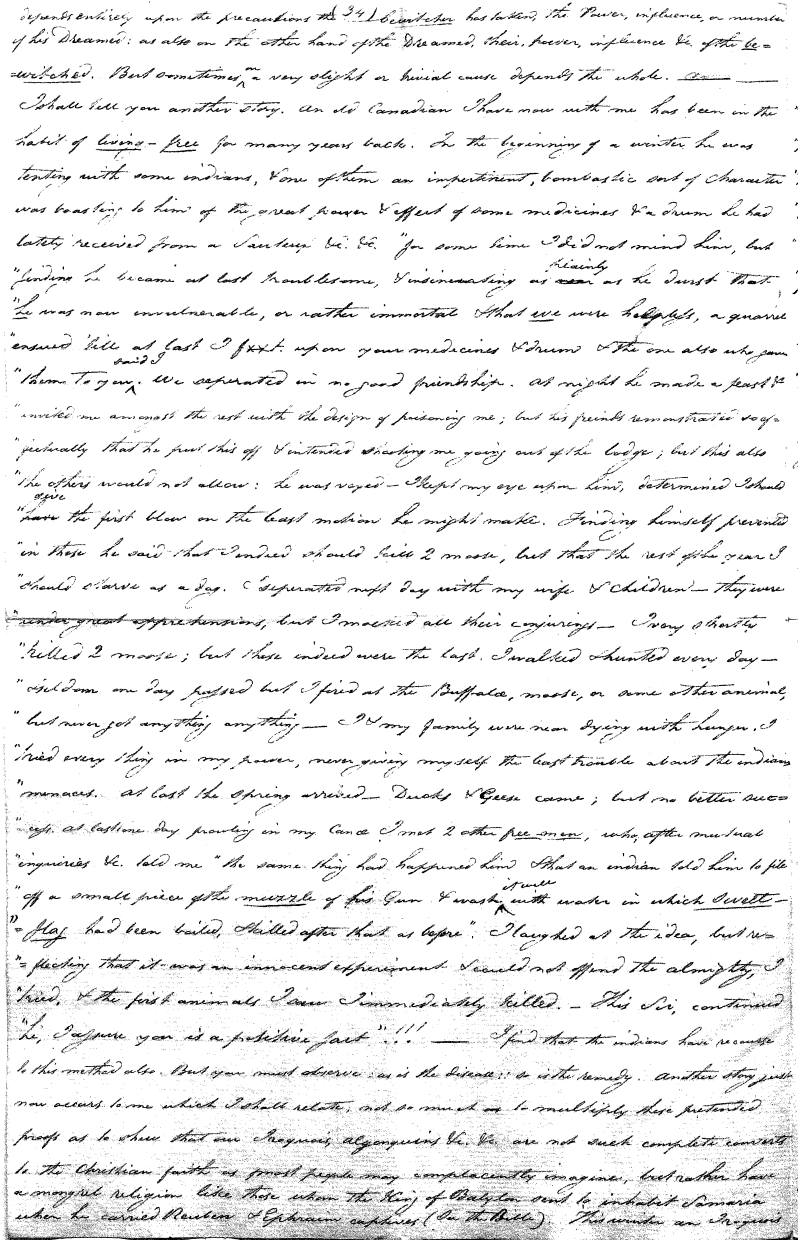 depends entirely upon the precautions the (34) bewitcher has taken, the Power, influence, or number
of his Dreamed: as also on the other hand of the Dreamed, their, power, influence &c. of the be=
=witched. But sometimes on a very slight or trivial cause depends the whole.
I shall tell you another story. An old Canadian I have now with me has been in the
habit of living-free for many years back. In the beginning of a winter he was
tenting with some indians, & one of them an impertinent, bombastic sort of character
was boasting to him of the great power & effect of some medicines & a drum he had
lately received from a Sauteux &c. &c. "for some time I did not mind him, but
"finding he became at last troublesome, & insinuating as plainly as he durst that
"he was now invulnerable, or rather immortal & that we were helpless, a quarrel
"ensued till at last I fxxt. upon your medicines & drum & the one also who gave
"them to you, said I. We seperated in no good friendship. At night he made a feast &
"invited me amongst the rest with the design of poisoning me; but his freinds remonstrated so ef=
"fectually that he put this off & intended shooting me going out of the lodge; but this also
"the others would not allow: he was vexed — I kept my eye upon him, determined I should
"give the first blow on the least motion he might make. Finding himself prevented
"in these he said that I indeed should kill 2 moose, but that the rest of the year I
"should starve as a dog. I seperated next day with my wife & children — they were
"under great apprehensions, but I mocked all their conjurings — I very shortly
"killed 2 moose; but these indeed were the last. I walked & hunted every day —
"seldom one day passed but I fired at the Buffaloe, moose, or some other animal,
"but never got anything anything — I & my family were near dying with hunger. I
"tried every thing in my power, never giving myself the least trouble about the indians
"menaces. At last the Spring arrived — Ducks & Geese came; but no better suc=
"cess. At last one day prowling in my Canoe I met 2 other free men, who, after mutual
"inquiries &c. told me "the same thing had happened him & that an indian told him to file
"off a small piece of the muzzle of his Gun & wash it well with water in which Swett-
"=flag had been boiled, & killed after that as before". I laughed at the idea, but re=
"=flecting that it was an innocent experiment & could not offend the almighty, I
"tried, & the first animals I saw I immediately killed. — This Sir, continued
"he, I assure you is a positive fact"!!! — I find that the indians have recourse
to this method also. But you must observe: as is the disease:: so is the remedy. Another story just
now occurs to me which I shall relate, not so much as to multiply these pretended
proofs as to shew that our Iroquois, algonquins &c. &c. are not such complete converts
to the Christian faith as most people may complacently imagine, but rather have
a mongrel religion like those whom the King of Babylon sent to inhabit Samaria
when he carried Reuben & Ephraim captives (In the Bible). This winter an Iroquois